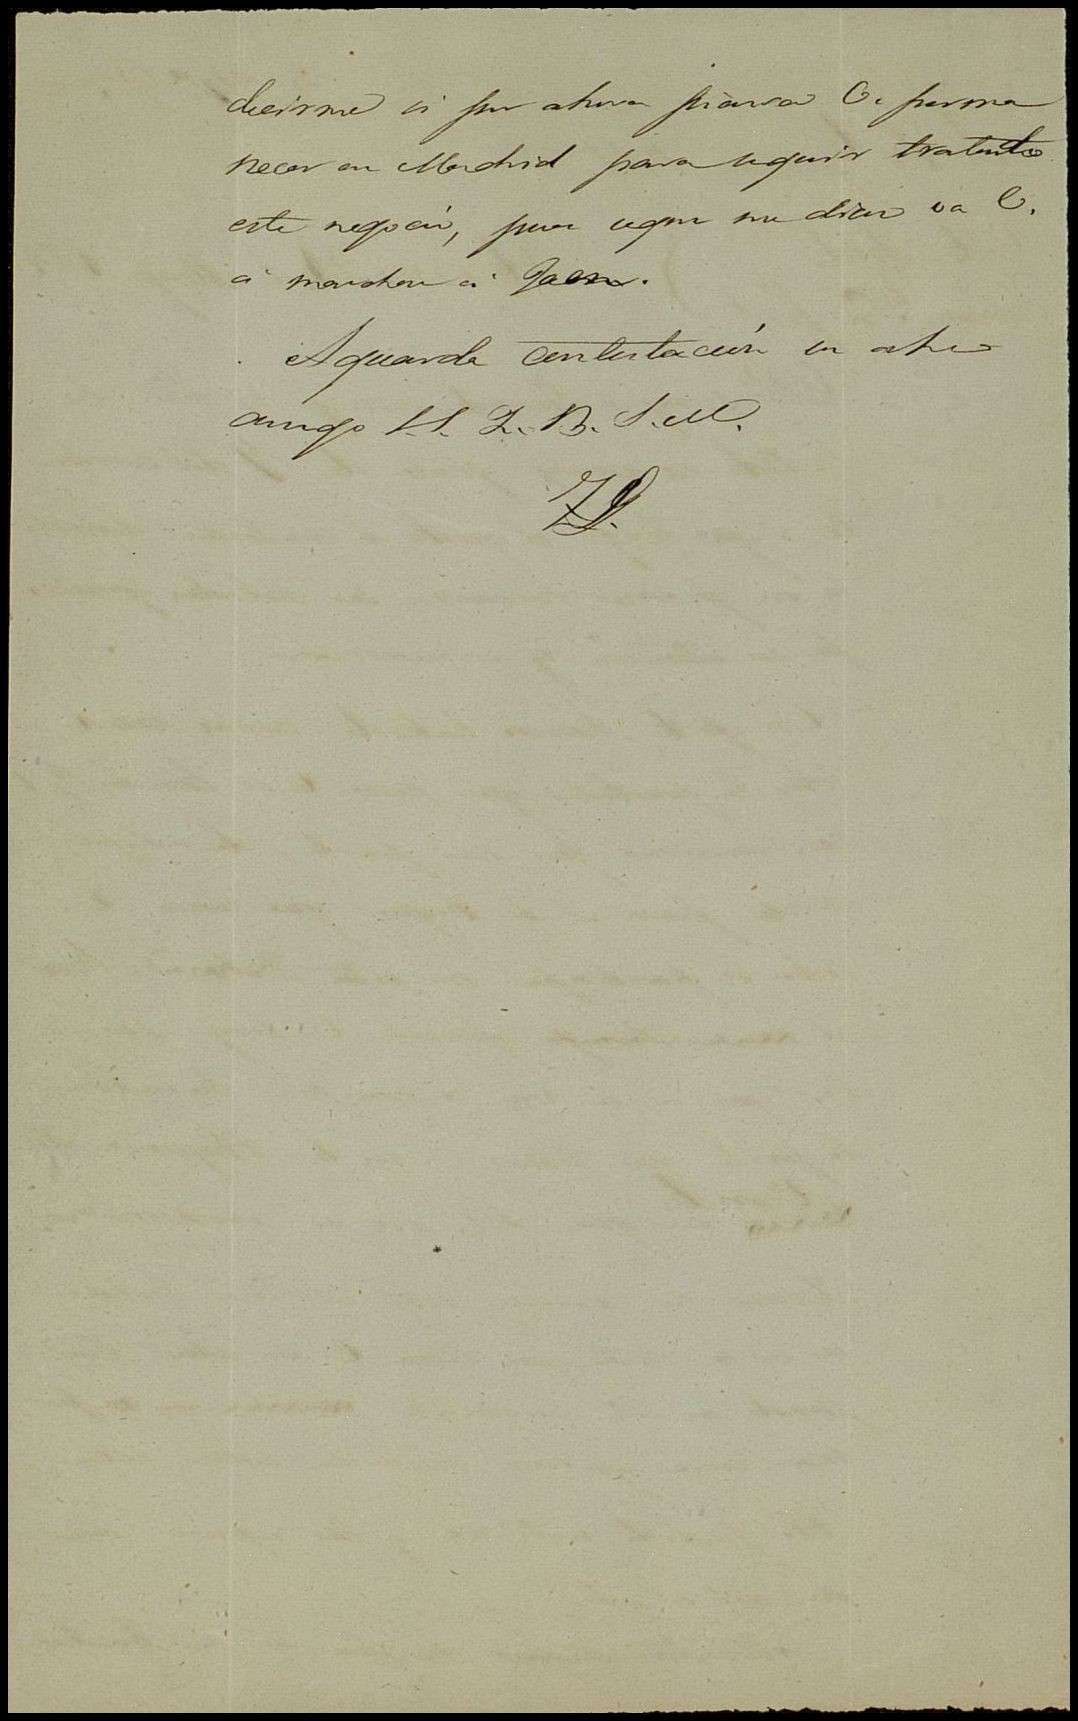 decirme si por ahora piensa V. perma
necer en Madrid para seguir tratando
este negocio, pues segun me dicen va V.
á marchar á Jaen.
Aguarda contestación su afmo
amigo S.S. Q. B. S. M.